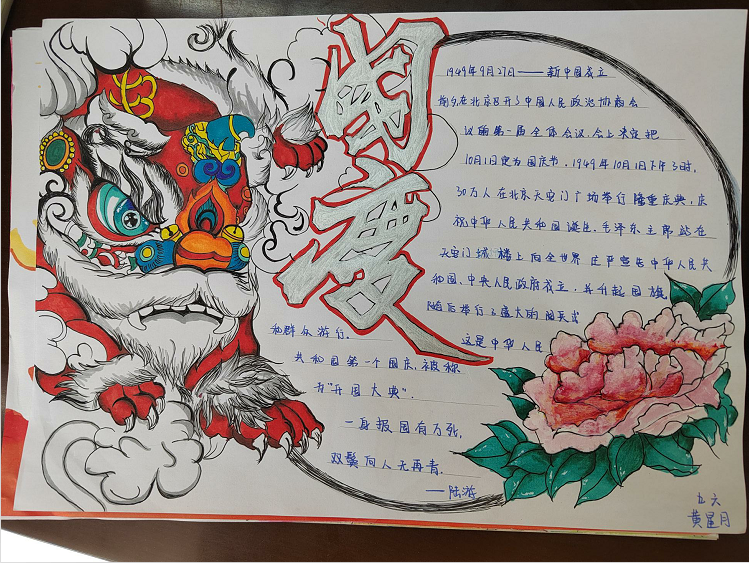 国庆
1949年9月27日——新中国成立
前夕,在北京召开了中国人民政治协商会
议的第一届全体会议,会上决定把
10月1日定为国庆节,1949年10月1日下午3时,
30万人在北京天安门广场举行隆重庆典,庆
祝中华人民共和国诞生.毛泽东主席站在
天安门城楼上向全世界庄严宣告中华人民共
和国,中央人民政府成立,并升起国旗
随后举行了盛大的阅兵式
和群众游行.
这是中华人民
共和国第一个国庆,被称
为"开国大典".
一身报国有万死,
双鬓向人无再青.
——陆游
九六
黄星月